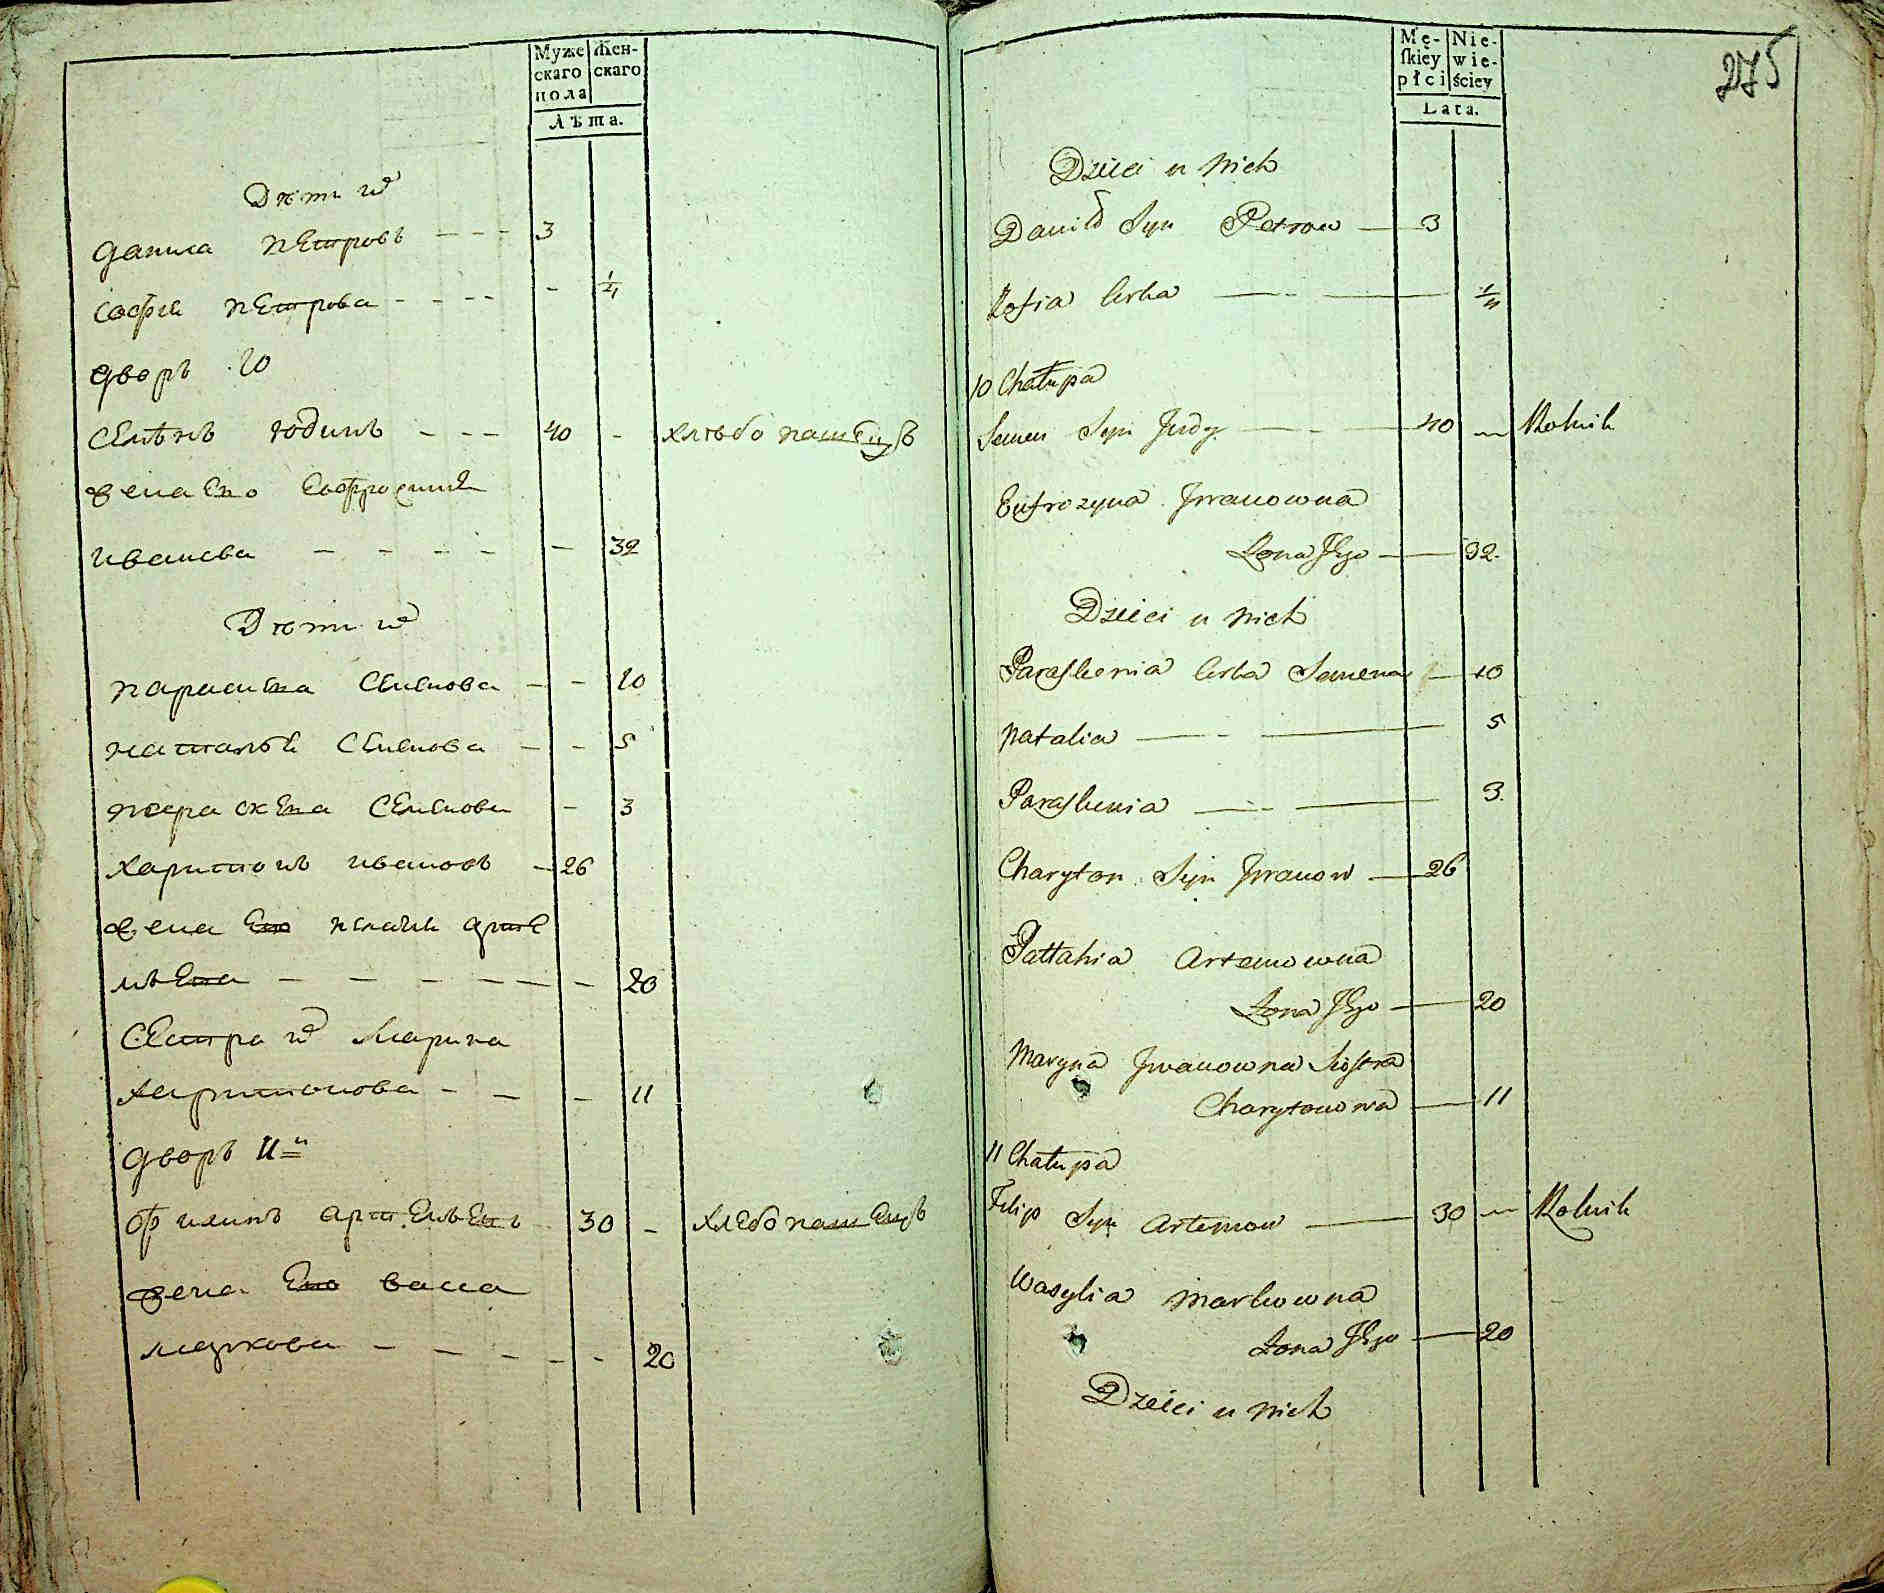 Муже Жен-
скаго скаго
пола
Лѣта.
Дѣти их
данила пЕтровъ - - - 3
софия пЕтрова - - - - - 1/4
дворъ 10
СЕмѣнъ юдинъ - - - 40 - хлѣбопашЕцъ
жена Его Евфросиния
иванова - - - - - 32
Дѣти их
параскева СЕменова - - 10
наталья СЕменова - - 5
параскЕва СЕменова - 3
харитонъ ивановъ - 26
жена Его пелагия артЕ
мьЕва - - - - - - - 20
СЕстра их Марина
харитонова - - - 11
дворъ 11й
филипъ артЕмьЕвъ 30 - хлЕбопашЕцъ
жена Его васса
маркова - - - - - 20
275
Mę- Nie-
ſkiey wie-
płci ściey
Lata.
Dzieci u Nich
Daniło Syn Petrow — 3
Zofia Corka — 1/4
10 Chałupa
Semen Syn Judy — 40 — Rolnik
Eufrozyna Jwanowna
Żona Jego — 32.
Dzieci u Nich
Paraskewia Corka Semena — 10
Natalia — 5
Paraskewia — 3.
Charyton Syn Jwanow — 26
Pallahia Artemowna
Żona Jego — 20
Maryna Jwanowna Siostra
Charytonowa — 11
11 Chałupa
Filip Syn Artemow — 30 — Rolnik
Wasylia Markowna
Żona Jego — 20
Dzieci u Nich